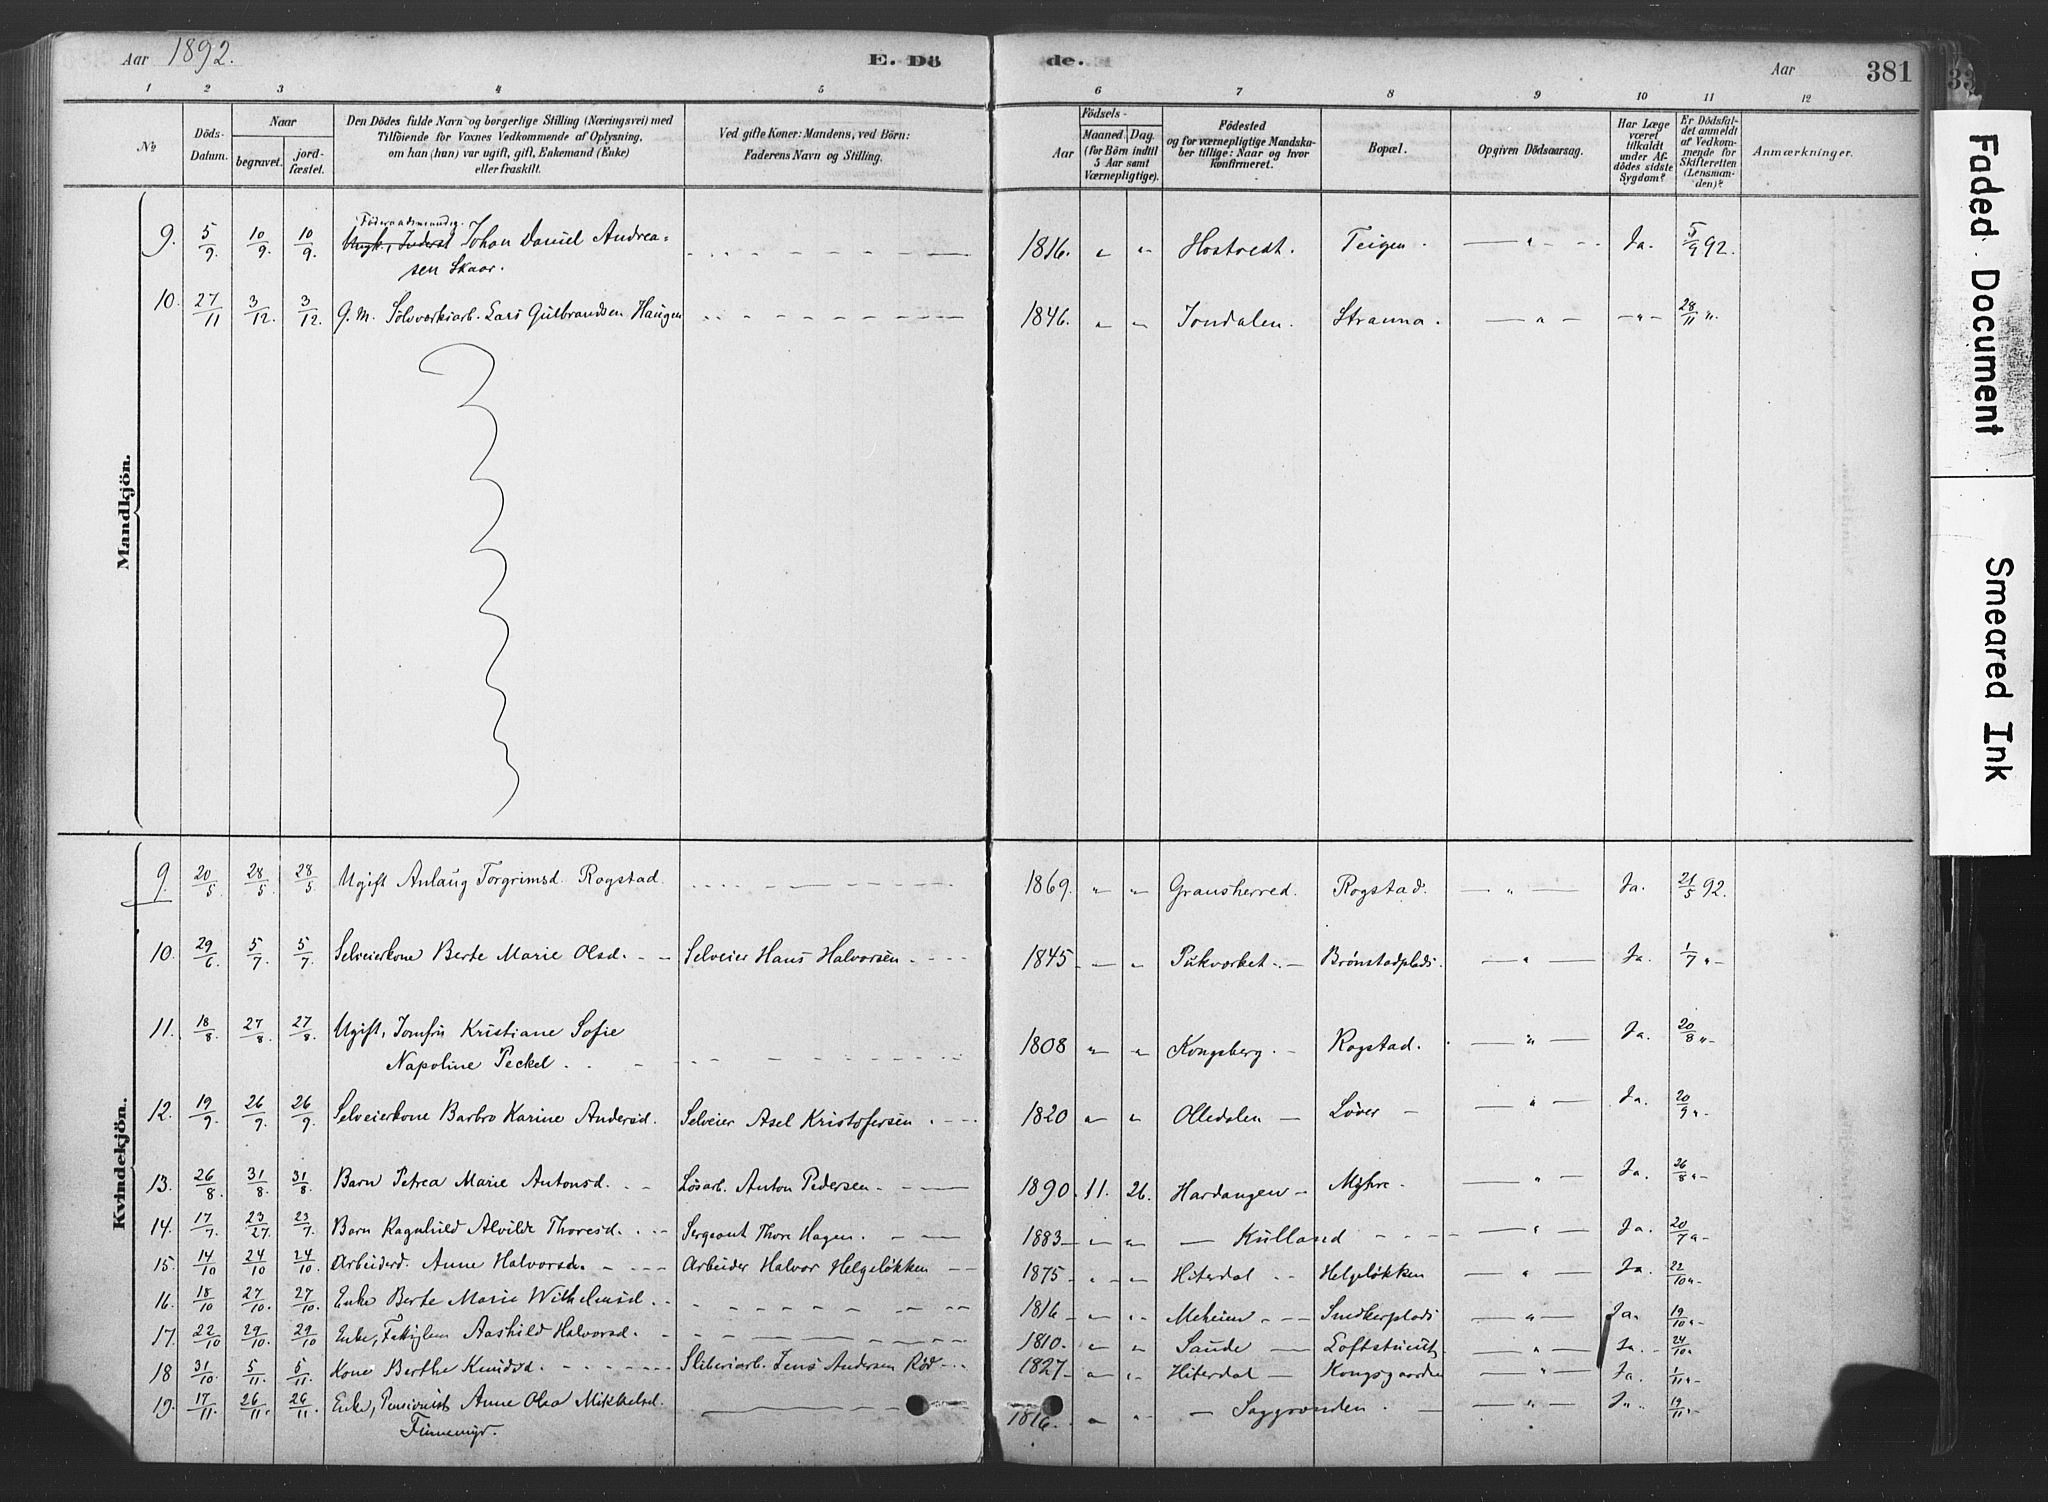 Aar 1892. E. Dö de. Aar 381
1 2 3 4 5 6 7 8 9 10 11 12
No Döds-Datum. Naar begravet. jordfæstet. Den Dödes fulde Navn og borgerlige Stilling (Næringsvei) med Tilföiende for Voxnes Vedkommende af Oplysning, om han (hun) var ugift, gift, Enkemand (Enke) eller fraskilt. Ved gifte Koner: Mandens, ved Börn: Faderens Navn og Stilling. Födsels- Aar Maaned. Dag. (for Börn indtil 5 Aar samt Værnepligtige). Födested og for værnepligtige Mandskaber tillige: Naar og hvor konfirmeret. Bopæl. Opgiven Dödsaarsag. Har Læge været tilkaldt under Afdödes sidste Sygdom? Er Dödsfaldet anmeldt af Vedkommende for Skifteretten (Lensmanden)? Anmærkninger.
Mandkjön.
Föderaadsmand
9. 5/9 10/9 10/9 Johan Daniel Andrea- 1816. " " Hostvedt. Teigen. — " — Ja. 5/9 92.
sen Skaar.
10. 27/11 3/12. 3/12. G. M. Sölvverksarb. Lars Gulbrandsen Haugen 1846. " " Jondalen. Stranna. — " — — " — 28/11 ".
Kvindekjön.
9. 20/5. 28/5. 28/5 Ugift Anlaug Torgrimsd. Rogstad 1869. " " Gransherred. Rogstad. — " — Ja. 21/5 92.
10. 29/6 5/7. 5/7. Selveierkone Berte Marie Olsd. Selveier Hans Halvorsen 1845 — " Pukværket. Brönstadplads. — " — Ja. 1/7 "
11. 18/8 27/8. 27/8. Ugift, Jomfru Kristiane Sofie
Napoline Peckel. 1808 " " Kongsberg. Rogstad. — " — Ja. 20/8 "
12. 19/9 26/9. 26/9 Selveierkone Barbro Karine Andersd. Selveier Asel Kristofersen. 1820 " " Olledalen Löver — " — Ja. 20/9 "
13. 26/8 31/8. 31/8. Barn Petrea Marie Antonsd. Lösarb. Anton Pedersen. 1890. 11. 26. Hardangen Myhre. — " — Ja. 26/8 "
14. 17/7 23/27. 23/7. Barn Ragnhild Alvilde Thoresd. Sergeant Thore Hagen. 1883 " " — Kulland — " — Ja. 20/7 "
15. 14/10 24/10 24/10. Arbeiderd. Anne Halvorsd. Arbeider Halvor Helgelökken 1875 " — Hiterdal Helgelökken — " — Ja. 22/10 "
16. 18/10 27/10. 27/10. Enke Berte Marie Wilhelmsd. 1816 " " Meheien Snedkerplads — " — Ja. 19/10 "
17. 22/10 29/10. 29/10 Enke, Fattiglem Aashild Halvorsd. 1810. " " Saude — Loftstuens — " — Ja. 24/10
18 31/10. 5/11. 5/11. Kone Berthe Knudsd. Sliberiarb. Jens Andersen Röd 1827 " " Hiterdal — Kongsgaarden — " — Ja. 1/11 "
19. 17/11. 26/11. 26/11 Enke, Pensionist Anne Olea Mikkelsd. 1816. " " — Saggrenden. — " — Ja. 19/11 "
Finnemyr.
Faded Document
Smeared Ink
33